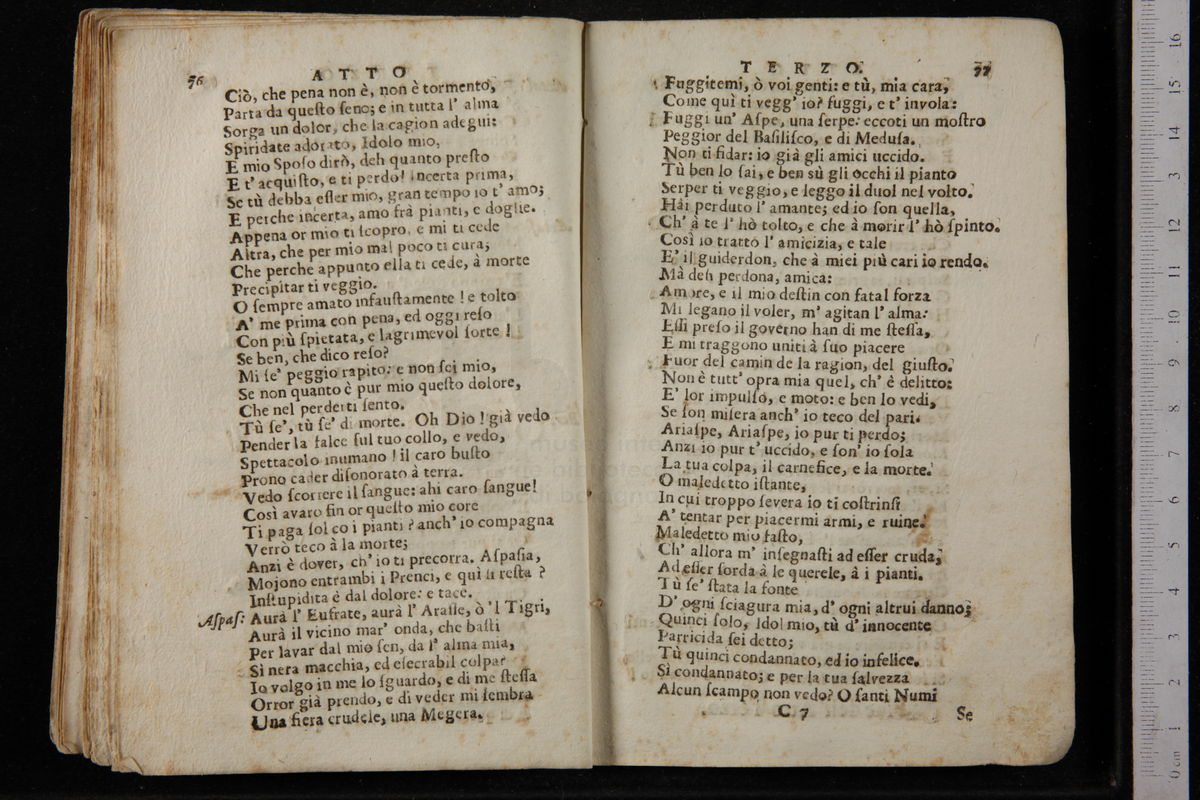 76
ATTO
Ciò, che pena non è, non è tormento,
Parta da queſto ſeno; e in tutta l' alma
Sorga un dolor, che la cagion adegui:
Spiridate adorato, Idolo mio,
E mio Spoſo dirò, deh quanto preſto
E t' acquiſto, e ti perdo! incerta prima,
Se tù debba eſſer mio, gran tempo io t' amo;
E perche incerta, amo frà pianti, e doglie.
Appena or mio ti ſcopro, e mi ti cede
Altra, che per mio mal poco ti cura;
Che perche appunto ella ti cede, à morte
Precipitar ti veggio.
O ſempre amato infauſtamente! e tolto
A' me prima con pena, ed oggi reſo
Con più ſpietata, e lagrimevol ſorte!
Se ben, che dico reſo?
Mi ſe' peggio rapito: e non ſei mio,
Se non quanto è pur mio queſto dolore,
Che nel perderti ſento.
Tù ſe', tù ſe' di morte. Oh Dio! già vedo
Pender la falce ſul tuo collo, e vedo,
Spettacolo inumano! il caro buſto
Prono cader diſonorato à terra.
Vedo ſcorrere il ſangue: ahi caro ſangue!
Così avaro fin or queſto mio core
Ti paga ſol co i pianti? anch' io compagna
Verrò teco à la morte;
Anzi è dover, ch' io ti precorra. Aſpaſia,
Mojono entrambi i Prenci, e qui ſi reſta?
Inſtupidita è dal dolore: e tace.
Aſpaſ: Aurà l' Eufrate, aurà l' Araſſe, ò 'l Tigri,
Aurà il vicino mar' onda, che baſti
Per lavar dal mio ſen, da l' alma mia,
Sì nera macchia, ed eſecrabil colpa?
Io volgo in me lo ſguardo, e di me ſteſſa
Orror già prendo, e di veder mi ſembra
Una fiera crudele, una Megera.
TERZO.
77
Fuggitemi, ò voi genti: e tù, mia cara,
Come quì ti vegg' io? fuggi, e t' invola:
Fuggi un' Aſpe, una ſerpe: eccoti un moſtro
Peggior del Baſiliſco, e di Meduſa.
Non ti fidar: io già gli amici uccido.
Tù ben lo ſai, e ben sù gli occhi il pianto
Serper ti veggio, e leggo il duol nel volto.
Hai perduto l' amante; ed io ſon quella,
Ch' à te l' hò tolto, e che à morir l' hò ſpinto.
Così io tratto l' amicizia, e tale
E' il guiderdon, che à miei più cari io rendo.
Mà deh perdona, amica:
Amore, e il mio deſtin con fatal forza
Mi legano il voler, m' agitan l' alma:
Eſſi preſo il governo han di me ſteſſa,
E mi traggono uniti à ſuo piacere
Fuor del camin de la ragion, del giuſto.
Non è tutt' opra mia quel, ch' è delitto:
E' lor impulſo, e moto: e ben lo vedi,
Se ſon miſera anch' io teco del pari.
Ariaſpe, Ariaſpe, io pur ti perdo;
Anzi io pur t' uccido, e ſon' io ſola
La tua colpa, il carnefice, e la morte.
O maledetto iſtante,
In cui troppo ſevera io ti coſtrinſi
A' tentar per piacermi armi, e ruine.
Maledetto mio faſto,
Ch' allora m' inſegnaſti ad eſſer cruda,
Ad eſſer ſorda à le querele, à i pianti.
Tù ſe' ſtata la fonte
D' ogni ſciagura mia, d' ogni altrui danno;
Quinci ſolo, Idol mio, tù d' innocente
Parricida ſei detto;
Tù quinci condannato, ed io infelice.
Sì condannato; e per la tua ſalvezza
Alcun ſcampo non vedo? O ſanti Numi
C 7
Se